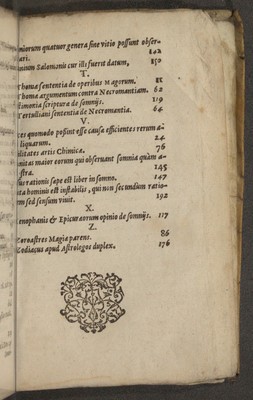 niorum quatuor genera sine vitio possunt obser-
uari. 142
minum Salomonis cur illi fuerit datum, 150
T.
Thomæ sententia de operibus Magorum. 55
Thomæ argumentum contra Necromantiam. 62
stimonia scripturæ de somnijs. 119
Tertulliani sententia de Necromantia. 64
V.
ces quomodo possint esse causa efficientes rerum a-
liquarum. 24
ilitates artis Chimicæ. 76
nitas maior eorum qui obseruant somnia quàm a-
stra. 145
us rationis sæpe est liber in somno. 147
ita hominis est instabilis, qui non secundùm ratio-
nem sed sensum viuit. 192
X.
enophanis & Epicuræorum opinio de somnijs. 117
Z.
Zoroastres Magiæ parens. 86
Zodiacus apud Astrologos duplex. 176